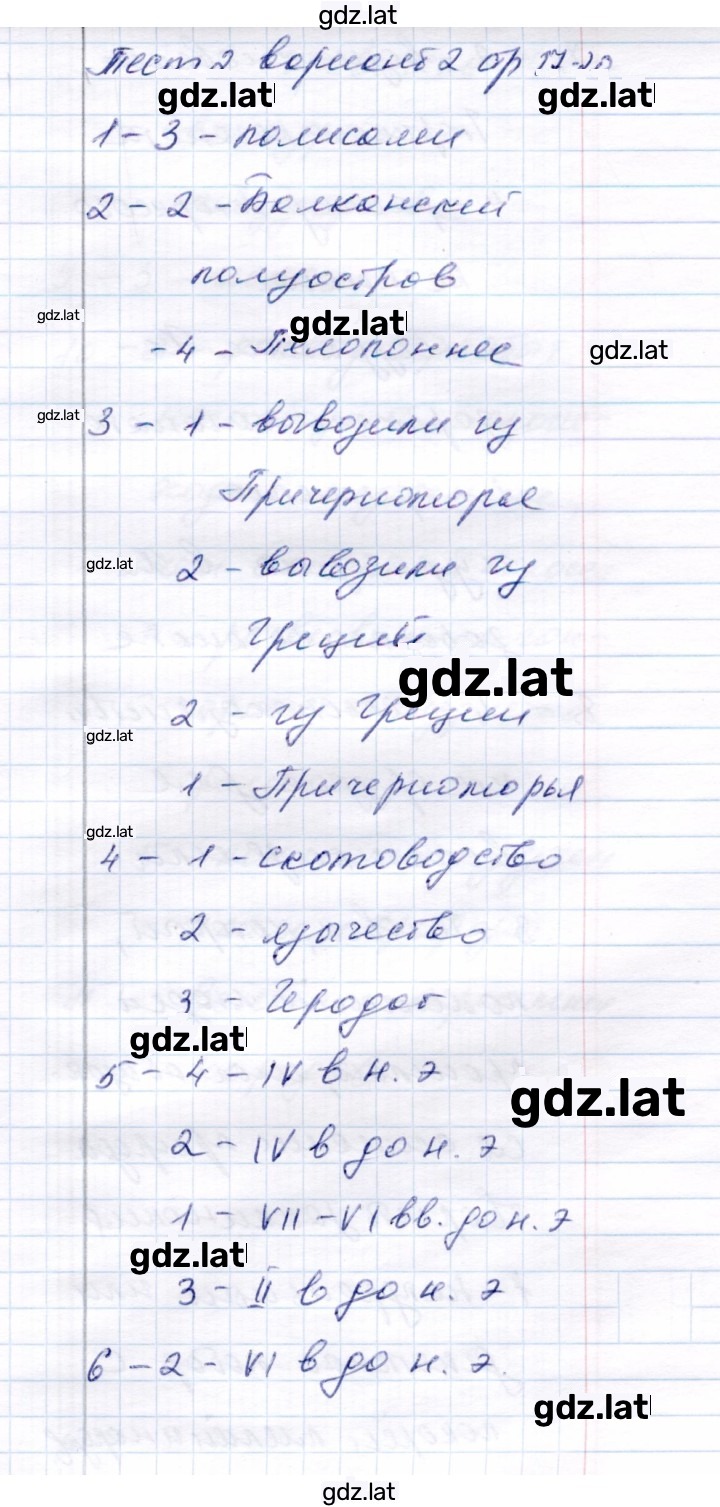 gdz.lat
Тест 2 вариант 2 стр 17-20
gdz.lat gdz.lat
1 - 3 - полисами
2 - 2 - Балканский
полуостров
gdz.lat gdz.lat
- 4 - Пелопоннес gdz.lat
gdz.lat 3 - 1 - вывозили из
Причерноморье
gdz.lat 2 - вывозили из
Греции
gdz.lat
2 - из Греции
gdz.lat
1 - Причерноморья
gdz.lat
4 - 1 - скотоводство
2 - язычество
3 - Геродот
gdz.lat
5 - 4 - IV в н. э
gdz.lat
2 - IV в до н. э
1 - VII - VI вв. до н. э
gdz.lat
3 - II в до н. э
6 - 2 - VI в до н. э.
gdz.lat
gdz.lat